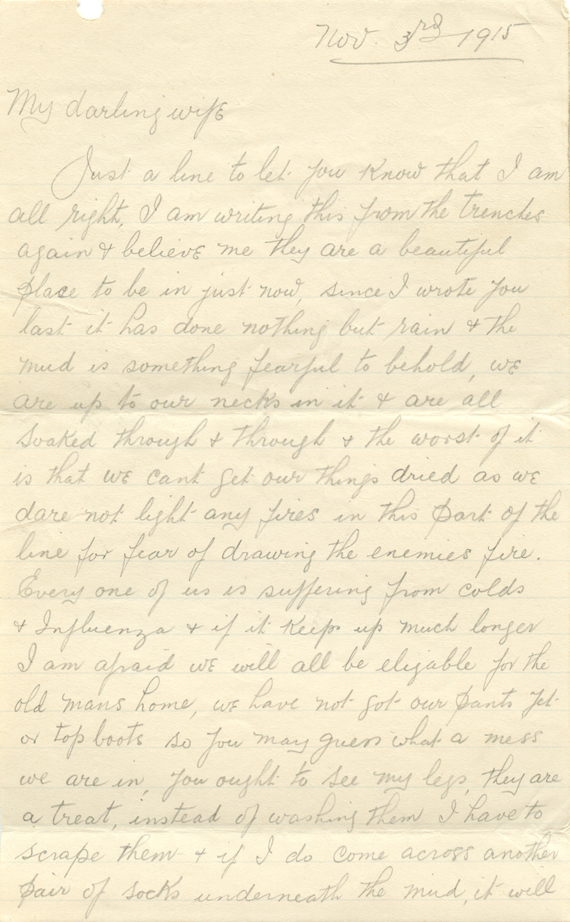 Nov. 3rd 1915
My darling wife
Just a line to let you know that I am
all right, I am writing this from the trenches
again & believe me they are a beautiful
place to be in just now, since I wrote you
last it has done nothing but rain & the
mud is something fearful to behold, we
are up to our necks in it & are all
soaked through & through & the worst of it
is that we cant get our things dried as we
dare not light any fires in this part of the
line for fear of drawing the enemies fire.
Every one of us is suffering from colds
& Influenza & if it keeps up much longer
I am afraid we will all be eligable for the
old mans home, we have not got our pants yet
or top boots so you may guess what a mess
we are in, you ought to see my legs, they are
a treat, instead of washing them I have to
scrape them & if I do come across another
pair of socks underneath the mud, it will